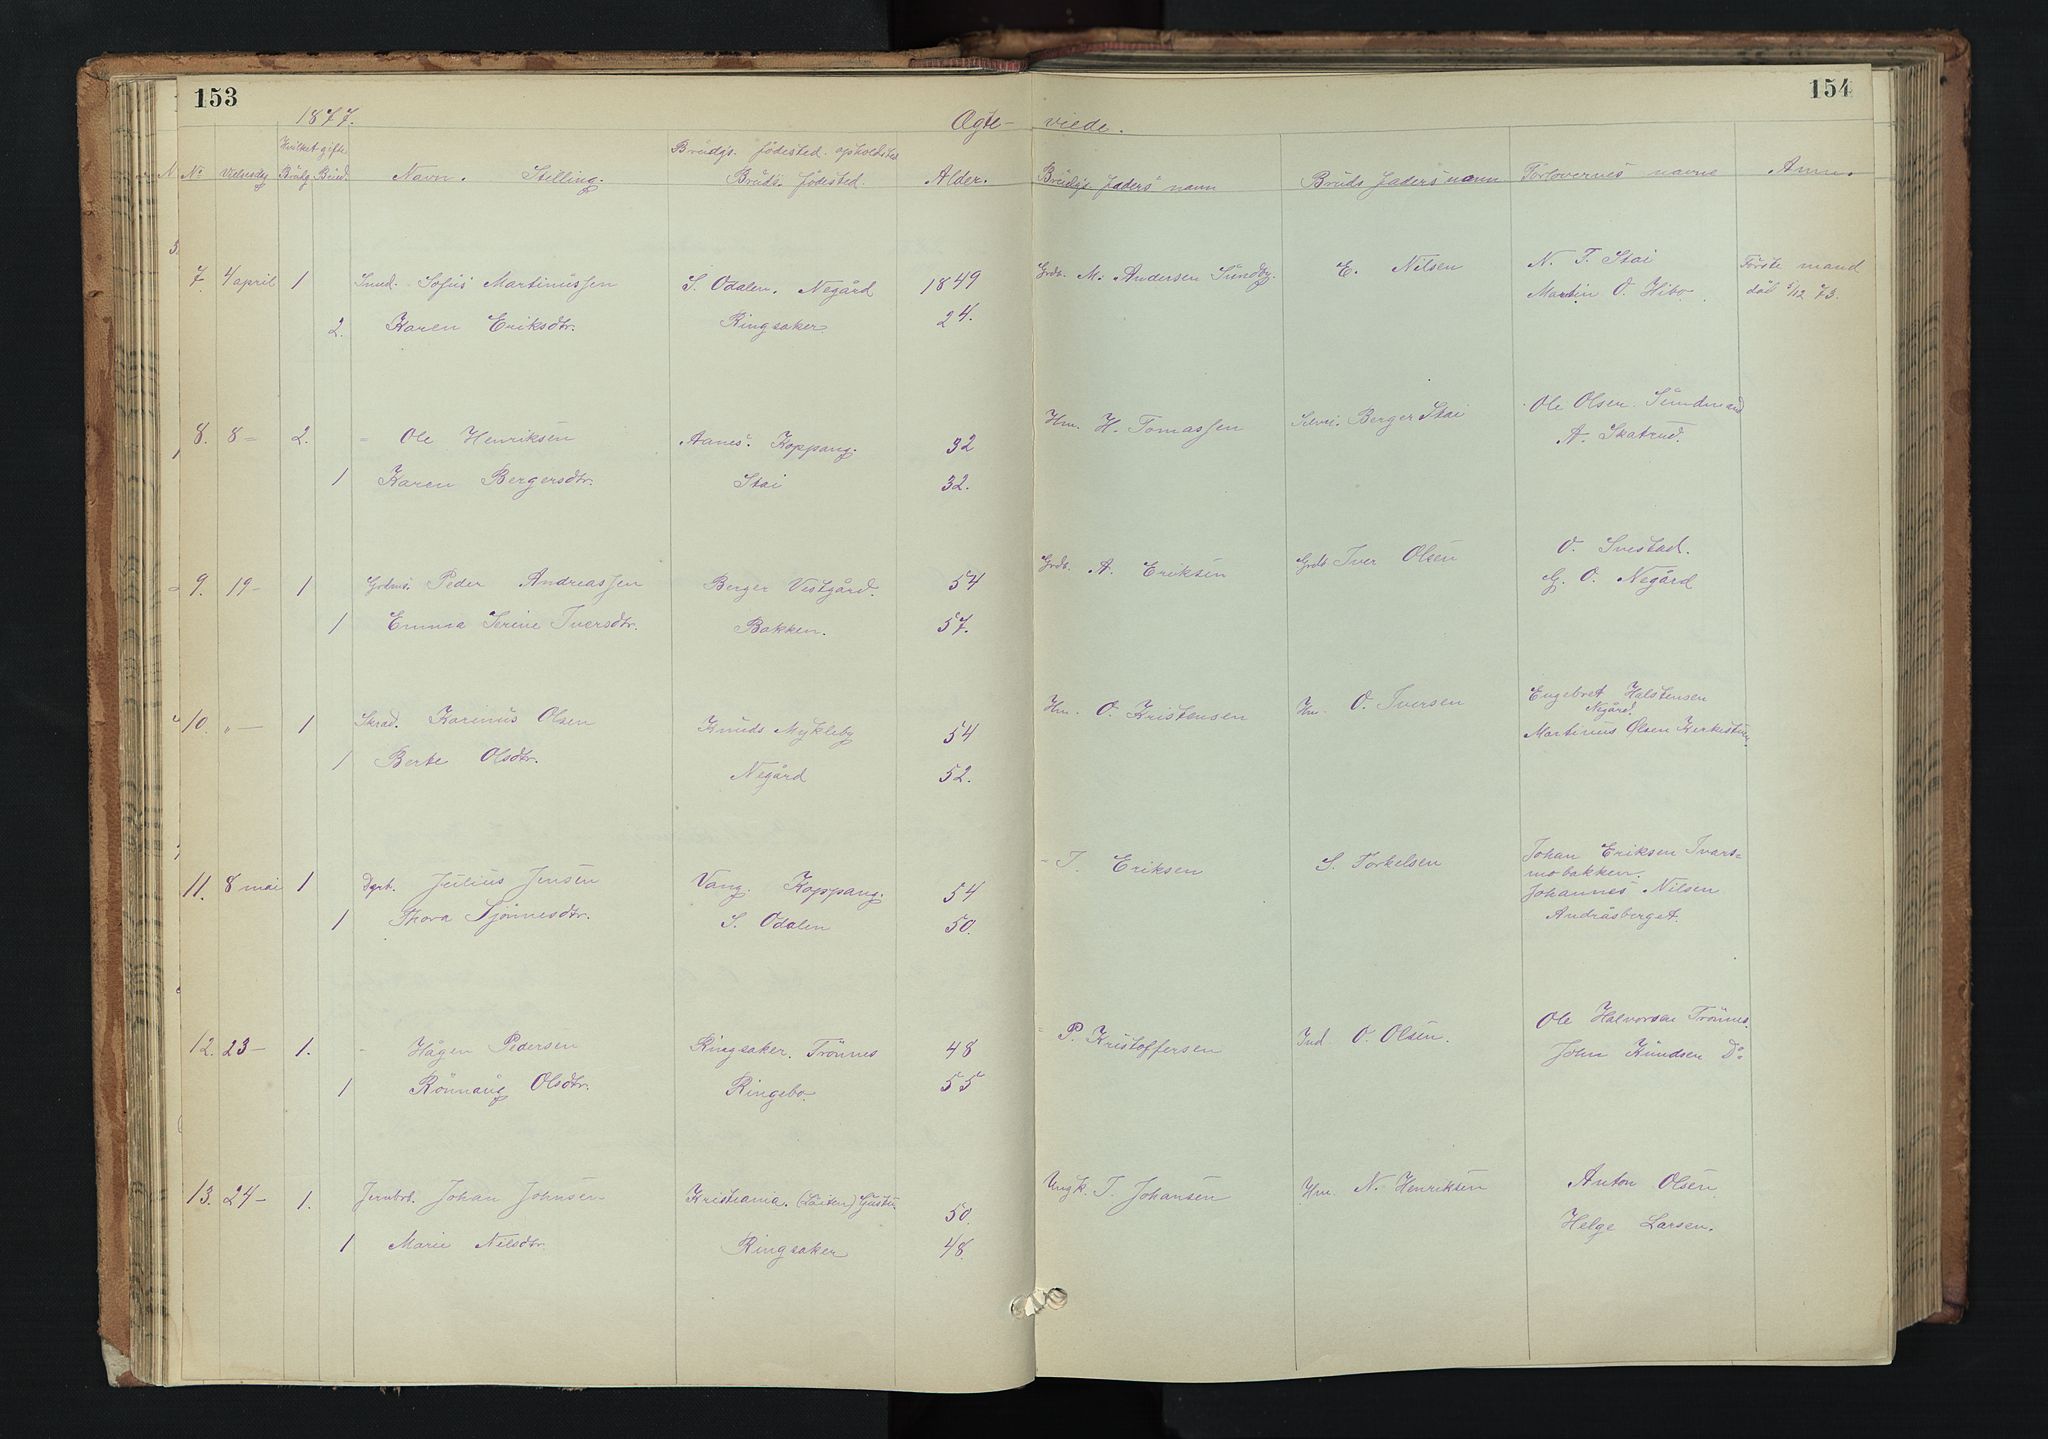 153
154
1877.
Ægte- viede.
No Vielsesdag Hvilket gifte. Brudg. Brud. Navn. Stilling. Brudgs. fødested. opholdssted Bruds fødested. Alder. Brudgs faders navn Bruds faders navn Forlovernes navne Anm.
7. 4/april 1 Smed. Sofus Martinussen S. Odalen. Negård 1849 Grdb. M. Andersen Sundby. E. Nilsen N. T. Stai Første mand
Martin O. Hibo død 5/12 73.
2. Karen Eriksdtr. Ringsaker 24.
8. 8 - 2. - Ole Henriksen Aanes. Koppang. 32 Hm. H. Tomassen Berger Stai Ole Olsen Sundmoen
A. Skatrud.
1 Karen Bergersdtr. Stai 32.
9. 19- 1 Grdms. Peder Andreassen Berger Vestgård. 54 Grdb. A. Eriksen Grdb Iver Olsen O. Svestad.
G. O. Negård
1 Emma Serine Iversdtr. Bakken. 57.
10. „- 1 Skrad. Karinus Olsen Knuds Mykleby 54 Hm. O. Kristensen Hm. O. Iversen Engebret Halstensen
Negård.
Martinus Olsen Kirkestuen.
1 Berte Olsdtr. Negård 52.
11. 8 mai 1 Dgrb. Julius Jensen Vang. Koppang. 54 - J. Eriksen S. Torkelsen Johan Eriksen Ivars=
mobakken.
Johannes Nilsen
Andråsberget.
1 Thora Sjønnesdtr. S. Odalen 50.
12. 23- 1. - Hågen Pedersen Ringsaker. Trønnes 48 - P. Kristoffersen Ind. O. Olsen. Ole Halvorsen Trønnes.
John Knudsen Do
1 Rønnaug Olsdtr. Ringebo. 55
13. 24- 1. Jernbrb. Johan Johnsen Kristiania. 50. Ungk. J. Johansen Hm. N. Henriksen Anton Olsen
Helge Larsen.
1 Marie Nilsdtr. Ringsaker 48.